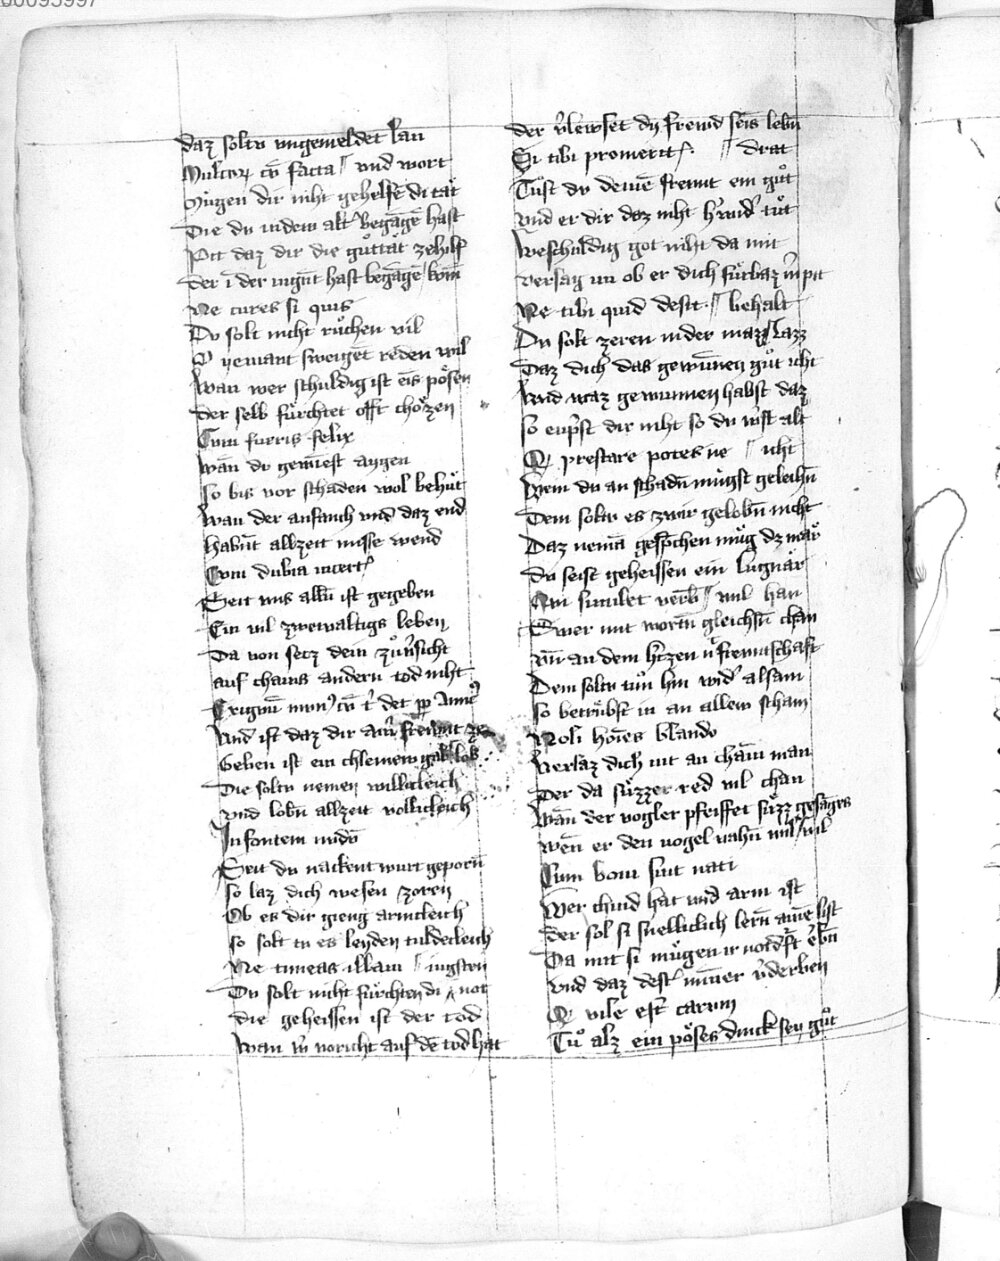 00095997
daz soltu vngemeldet lan
Multorum cum facta // vnd wort
Mügen dir niht gehelfen di tät
Die du in dem alter begangen hast
Pitt daz dir die guttät zehilf
Der i der iugent hast begangen kom
Ne cures si quis
Du solt nicht ruͦchen vil
O yemant sweigent reden wil
Wan wer schuldig ist eins poͤsen
der selb fürchtet offt choͤzen
Cum fueris felix
Wan du gewinest aygen
so bis vor schaden wol behuͤt
Wan der anfanch vnd daz end
Habent allzeit misse wend
Cum dubia incerta
Seit vns allen ist gegeben
Ein vil zweivaltigs leben
Da von setz dein zuͦversicht
auf chains andern tod niht
Exiguum munus cum
Vnd ist daz dir arm frewnt ze
Geben ist ein chleinew gab lob
Die soltu nemen willicleich
vnd loben allzeit vollicleich
Infantem nudum
Seit du nackent wurt geporn
so laz dich wesen zoren
Ob es dir gieng armcleich
so solt tu es leyden tuldecleich
Ne timeas illam // iungsten
Du solt niht fürchten di not
die geheissen ist der tod
Wan im voricht auf den tod hat
der verlewset dy frewd seins leben
Si tibi promerit // drat
Tuͦst du deinem freunt ein guͦt
vnd er dir daz niht herwider tuͦt
Weschuldig got niht da mit
versag im ob er dich fürbaz in pit
Ne tibi quid desit // behalt
Du solt zeren in der mazz lazz
Daz dich das gewunnen guͦt icht
Vnd waz gewunnen habst daz
so enprist dir niht so du wirst alt
Q prestare potes ne // niht
Wem du an schaden muͤgst geleihen
Dem soltu es zwir geloben nicht
Daz nemant gesprochen muͤg dz mär
du seist geheissen ein lugnär
Qui simulet verbis // wil han
Swer mit worten gleichsen chan
vnd an dem hertzen an frewntschaft
Dem soltu tun hin wider alsam
so betruͤbst in an allew scham
Noli homines blando
Verlaz dich nit an chain man
Der da suͤzzer red vil chan
Wan der vogler pfeiffet suͤzz gesanges
wen er den vogel vahen wil / vil
Cum boni sint nati
Wer chind hat vnd arm ist
der sol si snellichlich lern ainen list
Da mit si muͤgen ir notdurft erben
vnd daz dest minner verderben
Q vile est carum
Tuͦ alz ein poͤses dinck sey guͦt